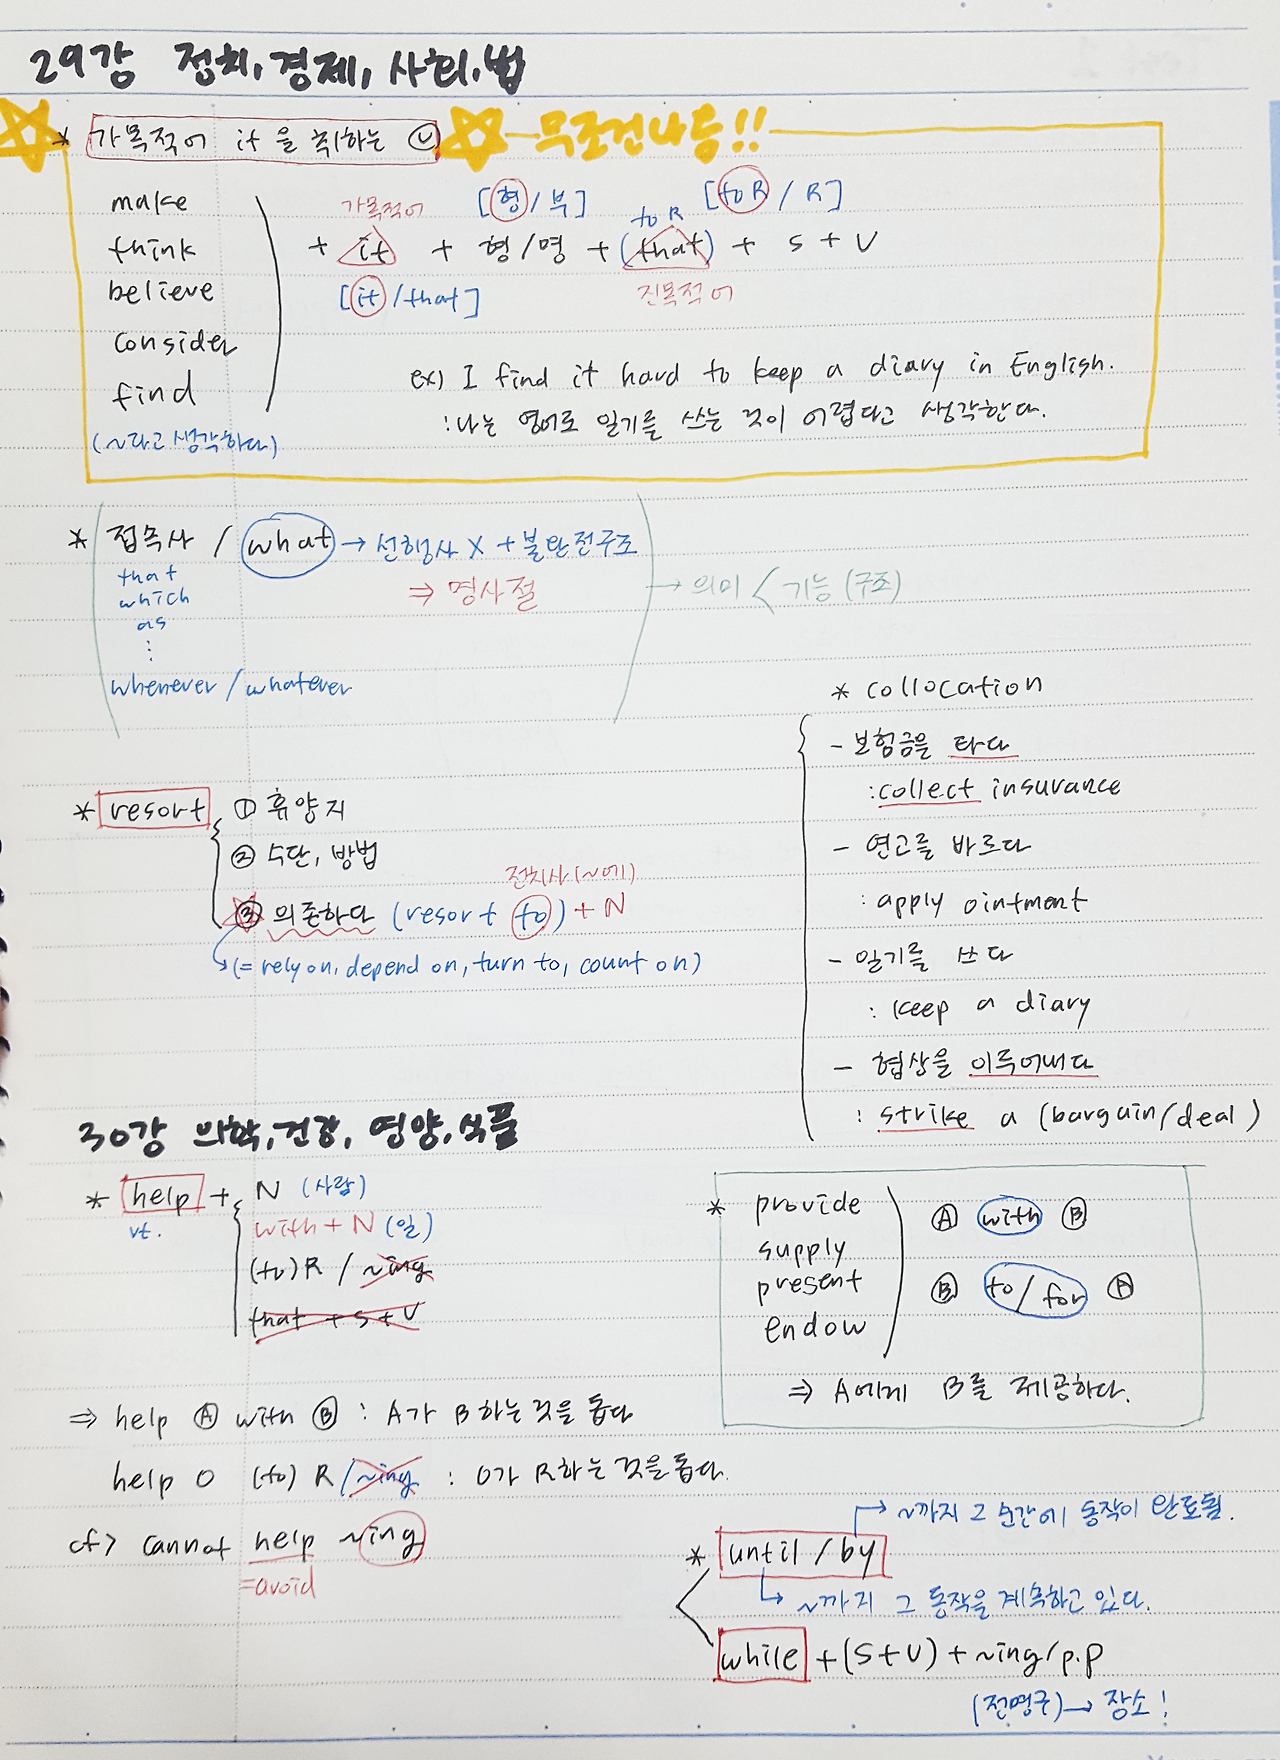 29강 정치, 경제, 사회, 법
* 가목적어 it 을 취하는 ⓥ ☆-무조건나옴!!
make
think
believe
consider
find
(~라고 생각하다)
가목적어 [형/부] to R [to R / R]
+ it + 형/명 + (that) + S + V
[it/that] 진목적어
ex) I find it hard to keep a diary in English.
: 나는 영어로 일기를 쓰는 것이 어렵다고 생각한다.
* 접속사 / what → 선행사 X + 불완전구조
that
which
as
⋮
⇒ 명사절 → 의미 < 기능 (구조)
whenever / whatever
* resort ① 휴양지
② 수단, 방법
전치사 (~에)
③ 의존하다 (resort to) + N
(= rely on, depend on, turn to, count on)
* collocation
- 보험금을 타다
: collect insurance
- 연고를 바르다
: apply ointment
- 일기를 쓰다
: keep a diary
- 협상을 이루어내다
: strike a (bargain/deal)
30강 의학, 건강, 영양, 식품
* help + N (사람)
vt. with + N (일)
(to) R / ~ing
that + S + V
⇒ help Ⓐ with Ⓑ : A가 B하는 것을 돕다
help O (to) R / ~ing : O가 R하는 것을 돕다.
cf> cannot help ~ing
=avoid
* provide
supply
present
endow
Ⓐ with Ⓑ
Ⓑ to/for Ⓐ
⇒ A에게 B를 제공하다.
→ ~까지 그 순간에 동작이 완료됨.
* until / by
→ ~까지 그 동작을 계속하고 있다.
while + (S+V) + ~ing/p.p
(전명구) → 장소!